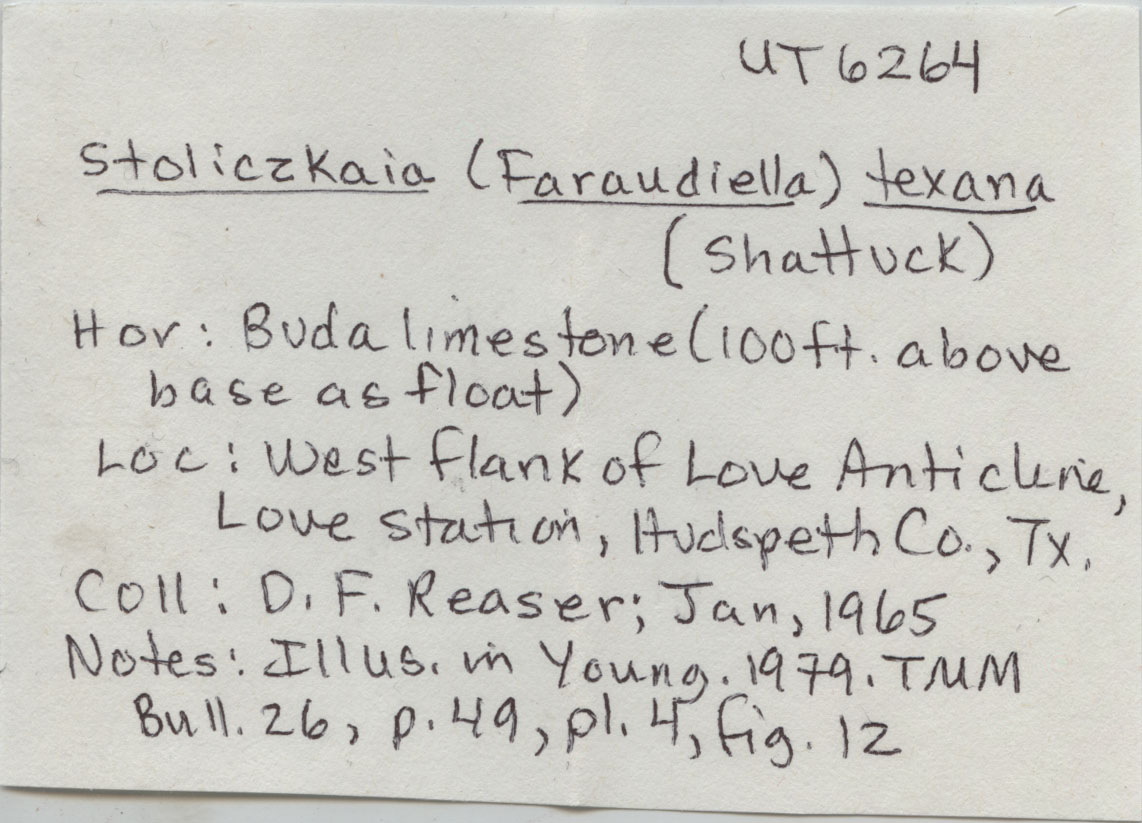 UT6264
Stoliczkaia (Faraudiella) texana
(Shattuck)
Hor: Buda limestone (100ft. above
base as float)
Loc: West flank of Love Anticline,
Love Station, Hudspeth Co., Tx.
Coll: D. F. Reaser; Jan, 1965
Notes: Illus. in Young. 1979. TMM
Bull. 26, p. 49, pl. 4, fig. 12